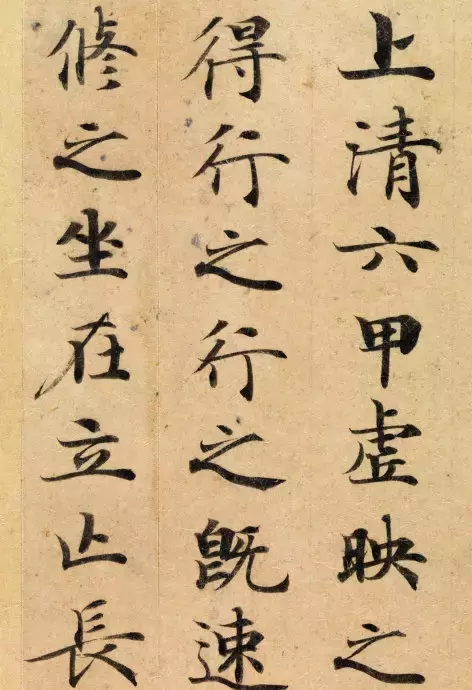 上清六甲虚映之
得行之行之既速
修之坐在立止長